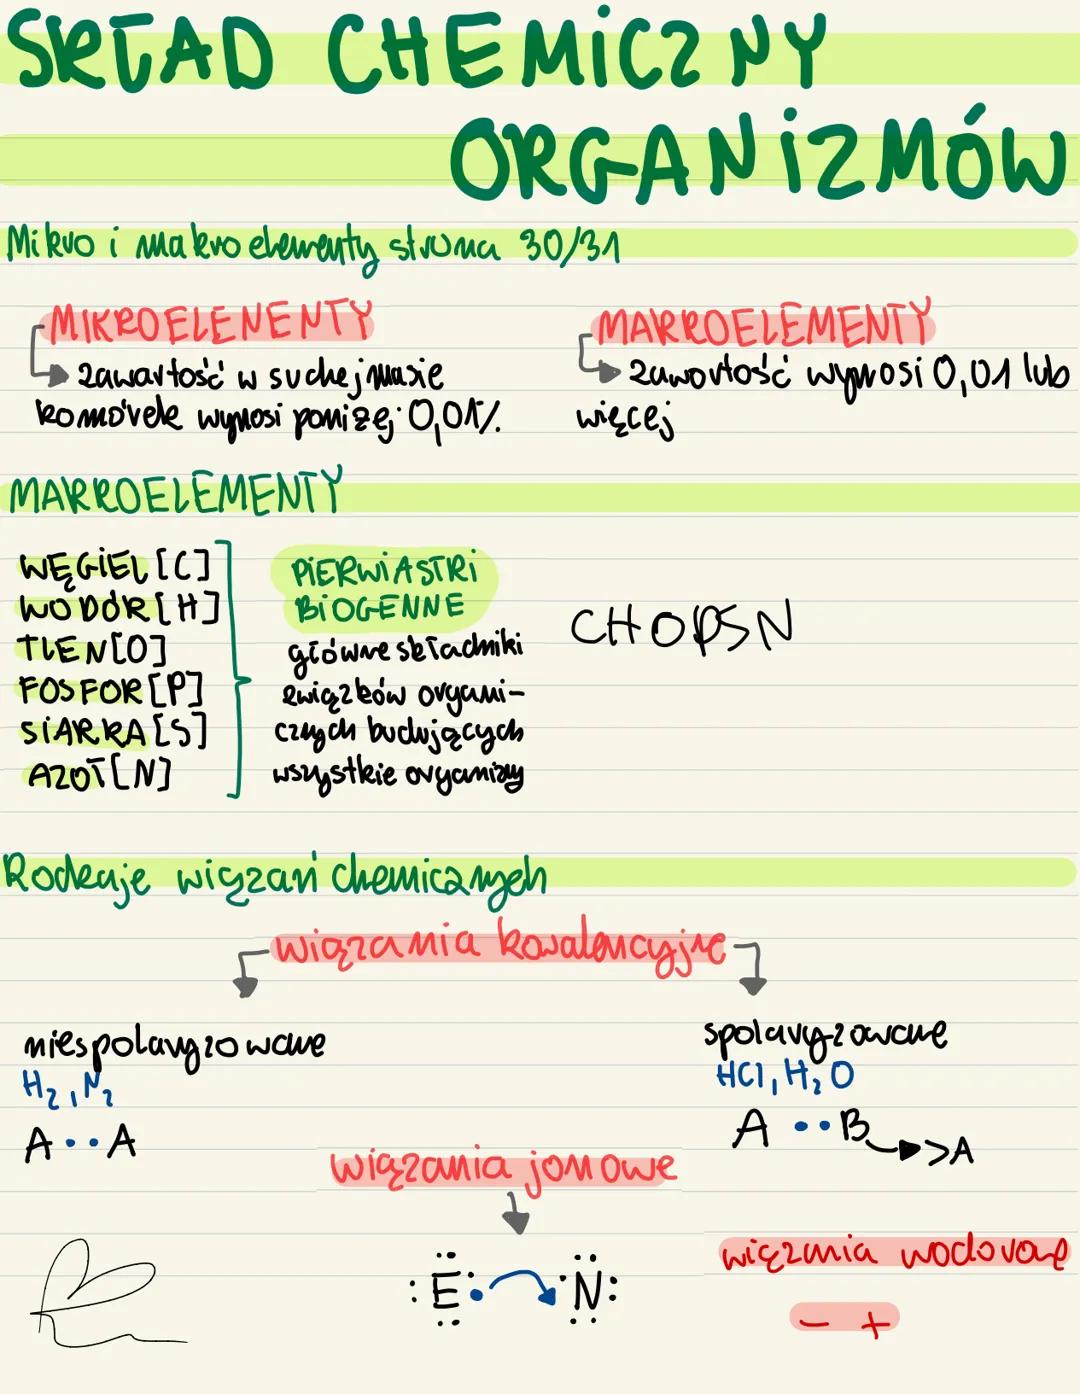 SKŁAD CHEMiCZNY
ORGANiZMÓW
Mikro i makroelementy strona 30/31
MIKROELENENTY
MAKROELEMENTY
zawartość w suchej masie
komórek wynosi poniżej 0,01%.
zawartość wynosi 0,01 lub
więcej
MAKROELEMENTY
WĘGiEL [C]
WODÓR [H]
TLEN [O]
FOSFOR [P]
SiARKA [S]
AZOT [N]
PiERWiASTKi
BiOGENNE
główne składniki
związków organi-
cznych budujących
wszystkie organizmy
CHOPSN
Rodzaje wiązań chemicznych
wiązania kowalencyjne
niespolaryzowane
H₂, N₂
A •• A
spolaryzowane
HCl, H₂O
A •• B >A
wiązania jonowe
:E• N:
wiązania wodorowe
- +